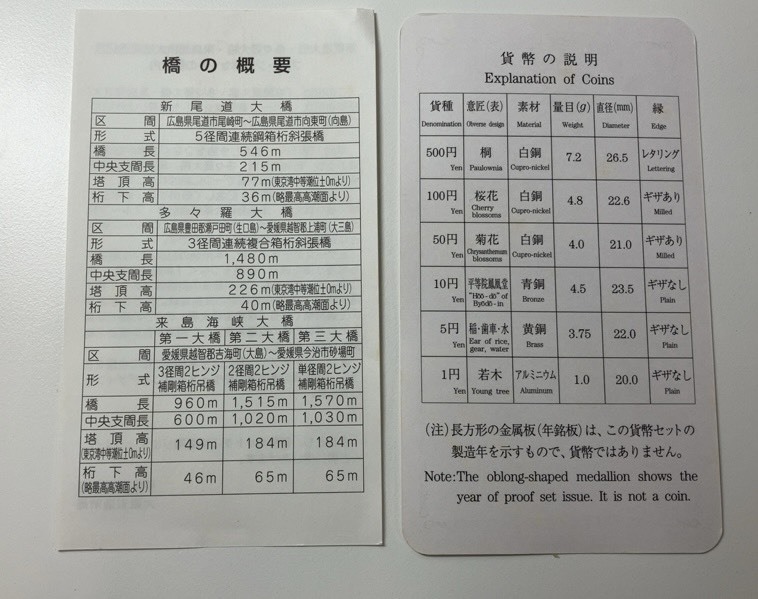 橋の概要
新尾道大橋
区間 広島県尾道市尾崎町～広島県尾道市向東町(向島)
形式 5径間連続鋼箱桁斜張橋
橋長 546m
中央支間長 215m
塔頂高 77m(東京湾中等潮位±0mより)
桁下高 36m(略最高高潮面より)
多々羅大橋
区間 広島県豊田郡瀬戸田町(生口島)～愛媛県越智郡上浦町(大三島)
形式 3径間連続複合箱桁斜張橋
橋長 1,480m
中央支間長 890m
塔頂高 226m(東京湾中等潮位±0mより)
桁下高 40m(略最高高潮面より)
来島海峡大橋
第一大橋 第二大橋 第三大橋
区間 愛媛県越智郡吉海町(大島)～愛媛県今治市砂場町
形式 3径間2ヒンジ補剛箱桁吊橋 2径間2ヒンジ補剛箱桁吊橋 単径間2ヒンジ補剛箱桁吊橋
橋長 960m 1,515m 1,570m
中央支間長 600m 1,020m 1,030m
塔頂高(東京湾中等潮位±0mより) 149m 184m 184m
桁下高(略最高高潮面より) 46m 65m 65m
貨幣の説明
Explanation of Coins
貨種 意匠(表) 素材 量目(g) 直径(mm) 縁
Denomination Obverse design Material Weight Diameter Edge
500円 桐 白銅 7.2 26.5 レタリング
Yen Paulownia Cupro-nickel Lettering
100円 桜花 白銅 4.8 22.6 ギザあり
Yen Cherry blossoms Cupro-nickel Milled
50円 菊花 白銅 4.0 21.0 ギザあり
Yen Chrysanthemum blossoms Cupro-nickel Milled
10円 平等院鳳凰堂 青銅 4.5 23.5 ギザなし
Yen "Hōō-dō" of Byōdō-in Bronze Plain
5円 稲・歯車・水 黄銅 3.75 22.0 ギザなし
Yen Ear of rice, gear, water Brass Plain
1円 若木 アルミニウム 1.0 20.0 ギザなし
Yen Young tree Aluminum Plain
(注)長方形の金属板(年銘板)は、この貨幣セットの
製造年を示すもので、貨幣ではありません。
Note:The oblong-shaped medallion shows the
year of proof set issue. It is not a coin.